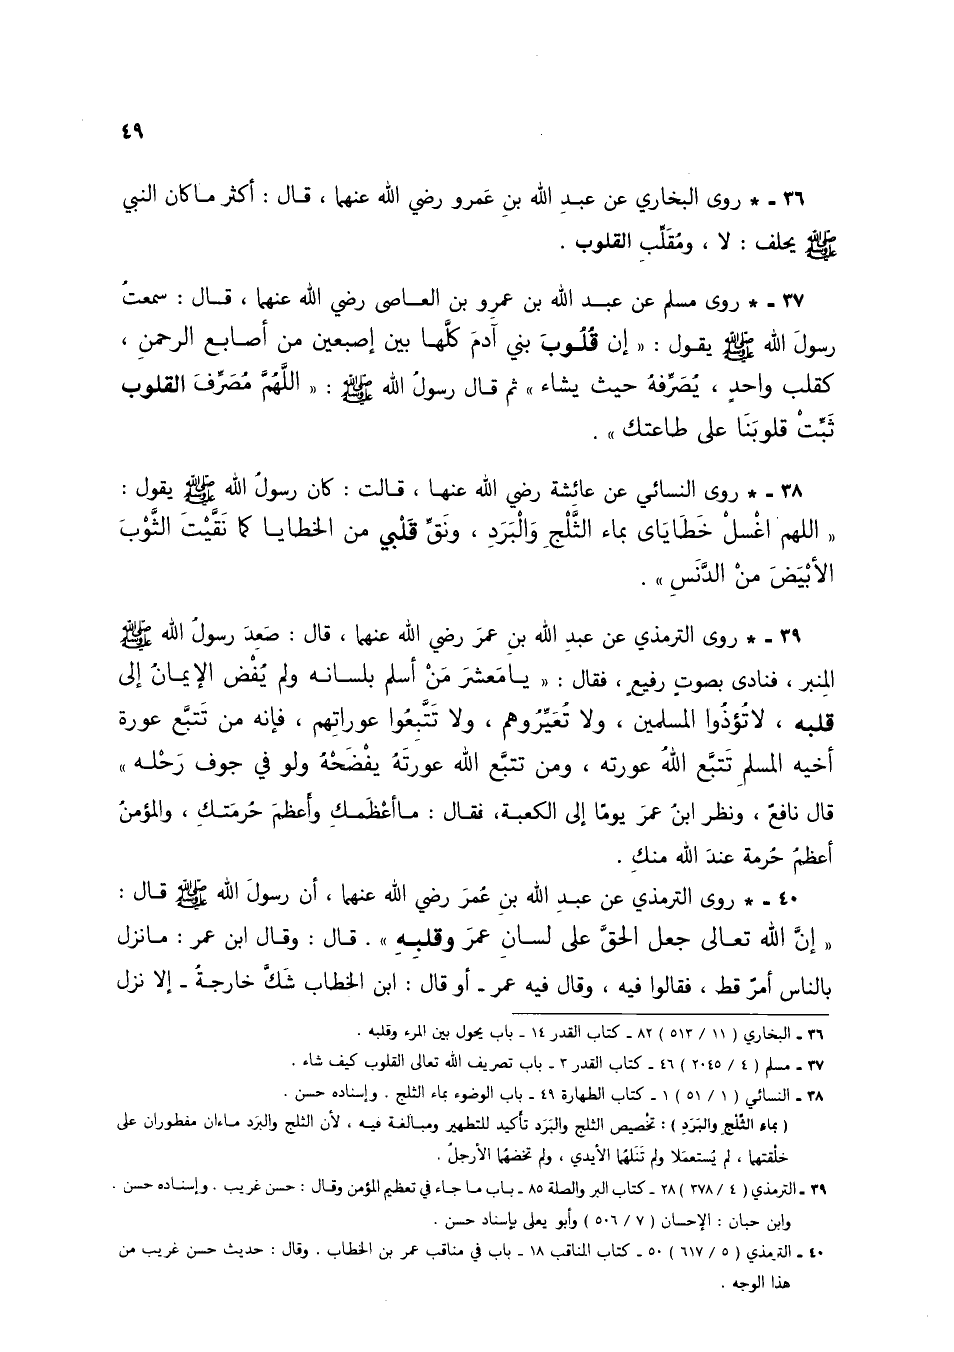 ٤٩
٣٦ - * روى البخاري عن عبـد الله بنِ عَمرو رضي الله عنهما ، قـال : أكثر مـاكان النبي
ﷺ يحلف : لا ، ومُقَلِّبِ القلوب .
٣٧ - * روى مسلم عن عبـد الله بن عمرِو بن العـاصى رضي الله عنهما ، قـال : سمعتُ
رسولَ الله ﷺ يقـول : « إن قُلُـوبَ بني آدمَ كلَّهـا بين إصبعين من أصـابـع الرحمنِ ،
كقلب واحدٍ ، يُصَرِّفهُ حيث يشاء » ثم قـال رسولُ الله ﷺ : « اللَّهُمَّ مُصَرِّفَ القلوب
ثَبِّتْ قلوبَنَا على طاعتك » .
٣٨ - * روى النسائي عن عائشة رضي الله عنهـا ، قـالت : كان رسولُ الله ﷺ يقول :
« اللهم اغْسلْ خَطَايَاى بماء الثَّلْجِ وَالْبَرَدِ ، ونَقِّ قَلْبي من الخطايـا كما نَقَّيْتَ الثَّوْبَ
الأبْيَضَ منْ الدَّنَسِ » .
٣٩ - * روى الترمذي عن عبدِ الله بنِ عمَرَ رضي الله عنهما ، قال : صَعِدَ رسولُ الله ﷺ
المنبر ، فنادى بصوتٍ رفيعٍ ، فقال : « يـامَعشرَ مَنْ أسلم بلسـانـه ولم يُفْض الإيمـانُ إلى
قلبه ، لاتُؤذُوا المسلمين ، ولا تُعَيِّرُوهم ، ولا تَتَّبعُوا عوراتِهم ، فإنه من تَتبَّع عورة
أخيه المسلمِ تَتبَّع اللهُ عورته ، ومن تتبَّع الله عورتَهُ يفْضَحْهُ ولو في جوف رَحْلـه »
قال نافعٌ ، ونظر ابنُ عمرَ يومًا إلى الكعبـة، فقـال : مـاأعْظَمـكِ وأعظمَ حُرمَتـكِ ، والمؤمنُ
أعظمُ حُرمة عندَ الله منكِ .
٤٠ - * روى الترمذي عن عبـد الله بنِ عُمَرَ رضي الله عنهما ، أن رسولَ الله ﷺ قـال :
« إنَّ الله تعـالى جعل الحقَّ على لسـانِ عمرَ وقلبِـه » . قـال : وقـال ابن عمر : مـانزل
بالناس أمرٌ قط ، فقالوا فيه ، وقال فيه عمر - أو قال : ابن الخطاب شَكَّ خارجـةُ - إلا نزل
٣٦ - البخاري ( ١١ / ٥١٣ ) ٨٢ - كتاب القدر ١٤ - باب يحول بين المرء وقلبه .
٣٧ - مسلم ( ٤ / ٢٠٤٥ ) ٤٦ - كتاب القدر ٣ - باب تصريف الله تعالى القلوب كيف شاء .
٣٨ - النسائي ( ١ / ٥١ ) ١ - كتاب الطهارة ٤٩ - باب الوضوء بماء الثلج . وإسناده حسن .
( بماء الثَّلْجِ والبَرَدِ ) : تخْصيص الثلج والبَرَد تأكيد للتطهير ومبـالغـة فيـه ، لأن الثلج والبَرد مـاءان مفطوران على
خلْقتها ، لم يُستعملا ولم تَنَلهُا الأيدي ، ولم تخضهُا الأرجلُ .
٣٩ - الترمذي ( ٤ / ٣٧٨ ) ٢٨ - كتاب البر والصلة ٨٥ - بـاب مـا جـاء في تعظيم المؤمن وقـال : حسن غريب . وإسنـاده حسن .
وابن حبان : الإحسان ( ٧ / ٥٠٦ ) وأبو يعلى بإسناد حسن .
٤٠ - الترمذي ( ٥ / ٦١٧ ) ٥٠ - كتاب المناقب ١٨ - باب في مناقب عمر بن الخطاب . وقال : حديث حسن غريب من
هذا الوجه .